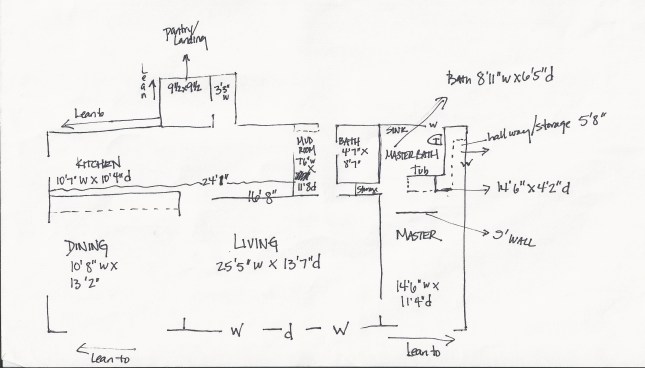 Pantry/
Landing
Lean
9½x9½
3'5"
w
Bath 8'11"w x 6'5"d
Lean to
SINK
w
hallway/storage 5'8"
MUD
ROOM
7'6"w
X
11'8d
BATH
4'7" X
8'7"
MASTER BATH
T
w
Tub
KITCHEN
10'7"w x 10'4"d
24'8"
Storage
14'6" x 4'2"d
16'8"
MASTER
5' WALL
DINING
10'8"w x
13'2"
LIVING
25'5"w x 13'7"d
14'6"w x
11'4"d
w d w
Lean to
Lean to